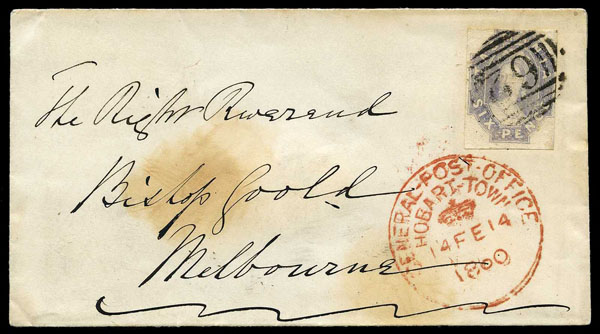 The Right Reverend
Bishop Goold
Melbourne
SIX PE
GENERAL·POST·OFFICE
HOBART-TOWN
14 FE 14
1860